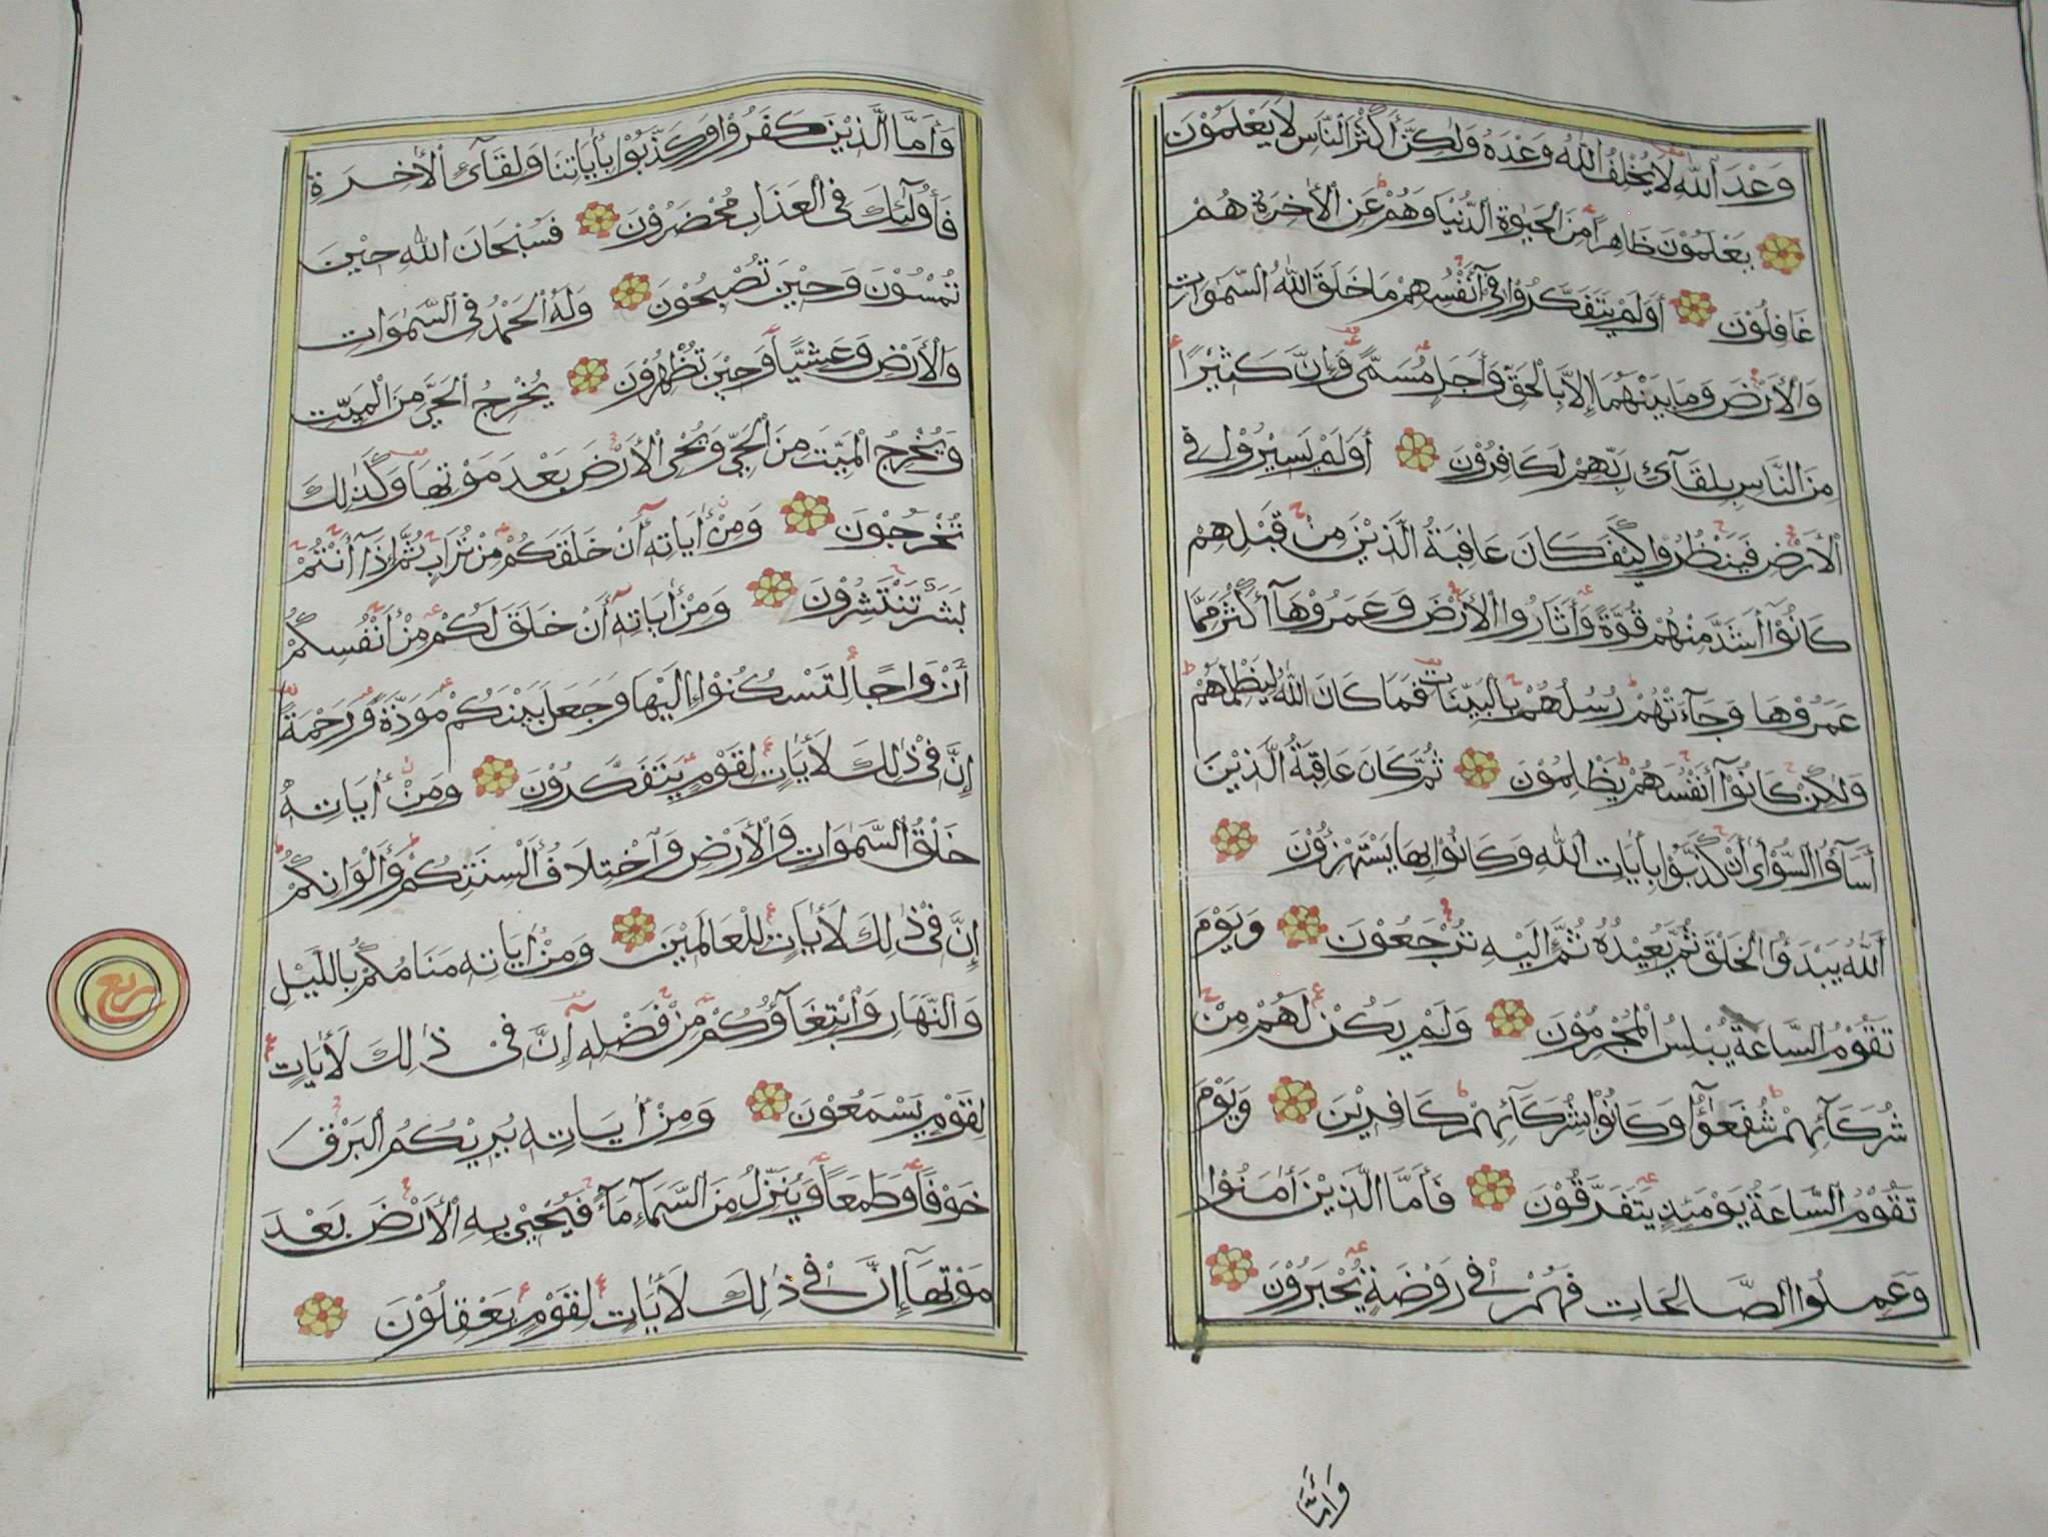 وَعْدَ ٱللّٰهِ لَا يُخْلِفُ ٱللّٰهُ وَعْدَهُ وَلٰكِنَّ أَكْثَرَ ٱلنَّاسِ لَا يَعْلَمُوْنَ
يَعْلَمُوْنَ ظَاهِرًا مِنَ ٱلْحَيٰوةِ ٱلدُّنْيَا وَهُمْ عَنِ ٱلْأٰخِرَةِ هُمْ
غَافِلُوْنَ أَوَلَمْ يَتَفَكَّرُوْا فِىٓ أَنْفُسِهِمْ مَا خَلَقَ ٱللّٰهُ ٱلسَّمٰوَاتِ
وَٱلْأَرْضَ وَمَا بَيْنَهُمَا إِلَّا بِٱلْحَقِّ وَأَجَلٍ مُسَمًّى وَإِنَّ كَثِيْرًا
مِنَ ٱلنَّاسِ بِلِقَآئِ رَبِّهِمْ لَكَافِرُوْنَ أَوَلَمْ يَسِيْرُوْا فِى
ٱلْأَرْضِ فَيَنْظُرُوْا كَيْفَ كَانَ عَاقِبَةُ ٱلَّذِيْنَ مِنْ قَبْلِهِمْ
كَانُوْٓا أَشَدَّ مِنْهُمْ قُوَّةً وَأَثَارُوا ٱلْأَرْضَ وَعَمَرُوْهَآ أَكْثَرَ مِمَّا
عَمَرُوْهَا وَجَآءَتْهُمْ رُسُلُهُمْ بِٱلْبَيِّنَاتِ فَمَا كَانَ ٱللّٰهُ لِيَظْلِمَهُمْ
وَلٰكِنْ كَانُوْٓا أَنْفُسَهُمْ يَظْلِمُوْنَ ثُمَّ كَانَ عَاقِبَةُ ٱلَّذِيْنَ
أَسَآؤُا ٱلسُّوْأٰى أَنْ كَذَّبُوْا بِأٰيَاتِ ٱللّٰهِ وَكَانُوْا بِهَا يَسْتَهْزِؤُنَ
ٱللّٰهُ يَبْدَؤُا ٱلْخَلْقَ ثُمَّ يُعِيْدُهُ ثُمَّ إِلَيْهِ تُرْجَعُوْنَ وَيَوْمَ
تَقُوْمُ ٱلسَّاعَةُ يُبْلِسُ ٱلْمُجْرِمُوْنَ وَلَمْ يَكُنْ لَهُمْ مِنْ
شُرَكَآئِهِمْ شُفَعٰٓؤُا وَكَانُوْا بِشُرَكَآئِهِمْ كَافِرِيْنَ وَيَوْمَ
تَقُوْمُ ٱلسَّاعَةُ يَوْمَئِذٍ يَتَفَرَّقُوْنَ فَأَمَّا ٱلَّذِيْنَ أٰمَنُوْا
وَعَمِلُوا ٱلصَّالِحَاتِ فَهُمْ فِى رَوْضَةٍ يُحْبَرُوْنَ
وَأَمَّا
وَأَمَّا ٱلَّذِيْنَ كَفَرُوْا وَكَذَّبُوْا بِأٰيَاتِنَا وَلِقَآئِ ٱلْأٰخِرَةِ
فَأُولٰٓئِكَ فِى ٱلْعَذَابِ مُحْضَرُوْنَ فَسُبْحَانَ ٱللّٰهِ حِيْنَ
تُمْسُوْنَ وَحِيْنَ تُصْبِحُوْنَ وَلَهُ ٱلْحَمْدُ فِى ٱلسَّمٰوَاتِ
وَٱلْأَرْضِ وَعَشِيًّا وَحِيْنَ تُظْهِرُوْنَ يُخْرِجُ ٱلْحَىَّ مِنَ ٱلْمَيِّتِ
وَيُخْرِجُ ٱلْمَيِّتَ مِنَ ٱلْحَىِّ وَيُحْىِ ٱلْأَرْضَ بَعْدَ مَوْتِهَا وَكَذٰلِكَ
تُخْرَجُوْنَ وَمِنْ أٰيَاتِهِٓ أَنْ خَلَقَكُمْ مِنْ تُرَابٍ ثُمَّ إِذَآ أَنْتُمْ
بَشَرٌ تَنْتَشِرُوْنَ وَمِنْ أٰيَاتِهِٓ أَنْ خَلَقَ لَكُمْ مِنْ أَنْفُسِكُمْ
أَزْوَاجًا لِتَسْكُنُوْٓا إِلَيْهَا وَجَعَلَ بَيْنَكُمْ مَوَدَّةً وَرَحْمَةً
إِنَّ فِىْ ذٰلِكَ لَأٰيَاتٍ لِقَوْمٍ يَتَفَكَّرُوْنَ وَمِنْ أٰيَاتِهِ
خَلْقُ ٱلسَّمٰوَاتِ وَٱلْأَرْضِ وَٱخْتِلَافُ أَلْسِنَتِكُمْ وَأَلْوَانِكُمْ
إِنَّ فِىْ ذٰلِكَ لَأٰيَاتٍ لِلْعَالَمِيْنَ وَمِنْ أٰيَاتِهِ مَنَامُكُمْ بِاللَّيْلِ
وَٱلنَّهَارِ وَٱبْتِغَآؤُكُمْ مِنْ فَضْلِهِٓ إِنَّ فِىْ ذٰلِكَ لَأٰيَاتٍ
لِقَوْمٍ يَسْمَعُوْنَ وَمِنْ أٰيَاتِهِ يُرِيْكُمُ ٱلْبَرْقَ
خَوْفًا وَطَمَعًا وَيُنَزِّلُ مِنَ ٱلسَّمَآءِ مَآءً فَيُحْيِىْ بِهِ ٱلْأَرْضَ بَعْدَ
مَوْتِهَآ إِنَّ فِىْ ذٰلِكَ لَأٰيَاتٍ لِقَوْمٍ يَعْقِلُوْنَ
ربع